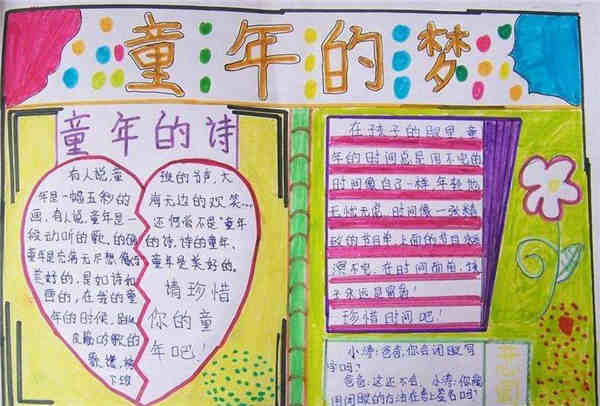 童年的梦
童年的诗
有人说,童
年是一幅五彩的
画,有人说,童年是一
般动听的歌,的确
童年是充满无尽想像
美好的,是如诗如
的,在我的童
年的时候,
歌的
歌谣,
下班
班的爷爷,大
海无边的欢笑…
还何尝不是"童年
的诗,诗的童年,
童年是美好的。
请珍惜
你的童
年吧!
在孩子的眼里,童
年的时间总是用不完的
时间像白了一样,年轻起
无忧无虑,时间像一张精
致的节目单,上面的节目
演不完,在时间面前,孩
子永远是富翁!
珍惜时间吧!
小涛:爸爸,你会闭眼写
字吗?
爸爸:这还不会,小涛:你能
用闭眼的方法在卷上签名吗?
开心